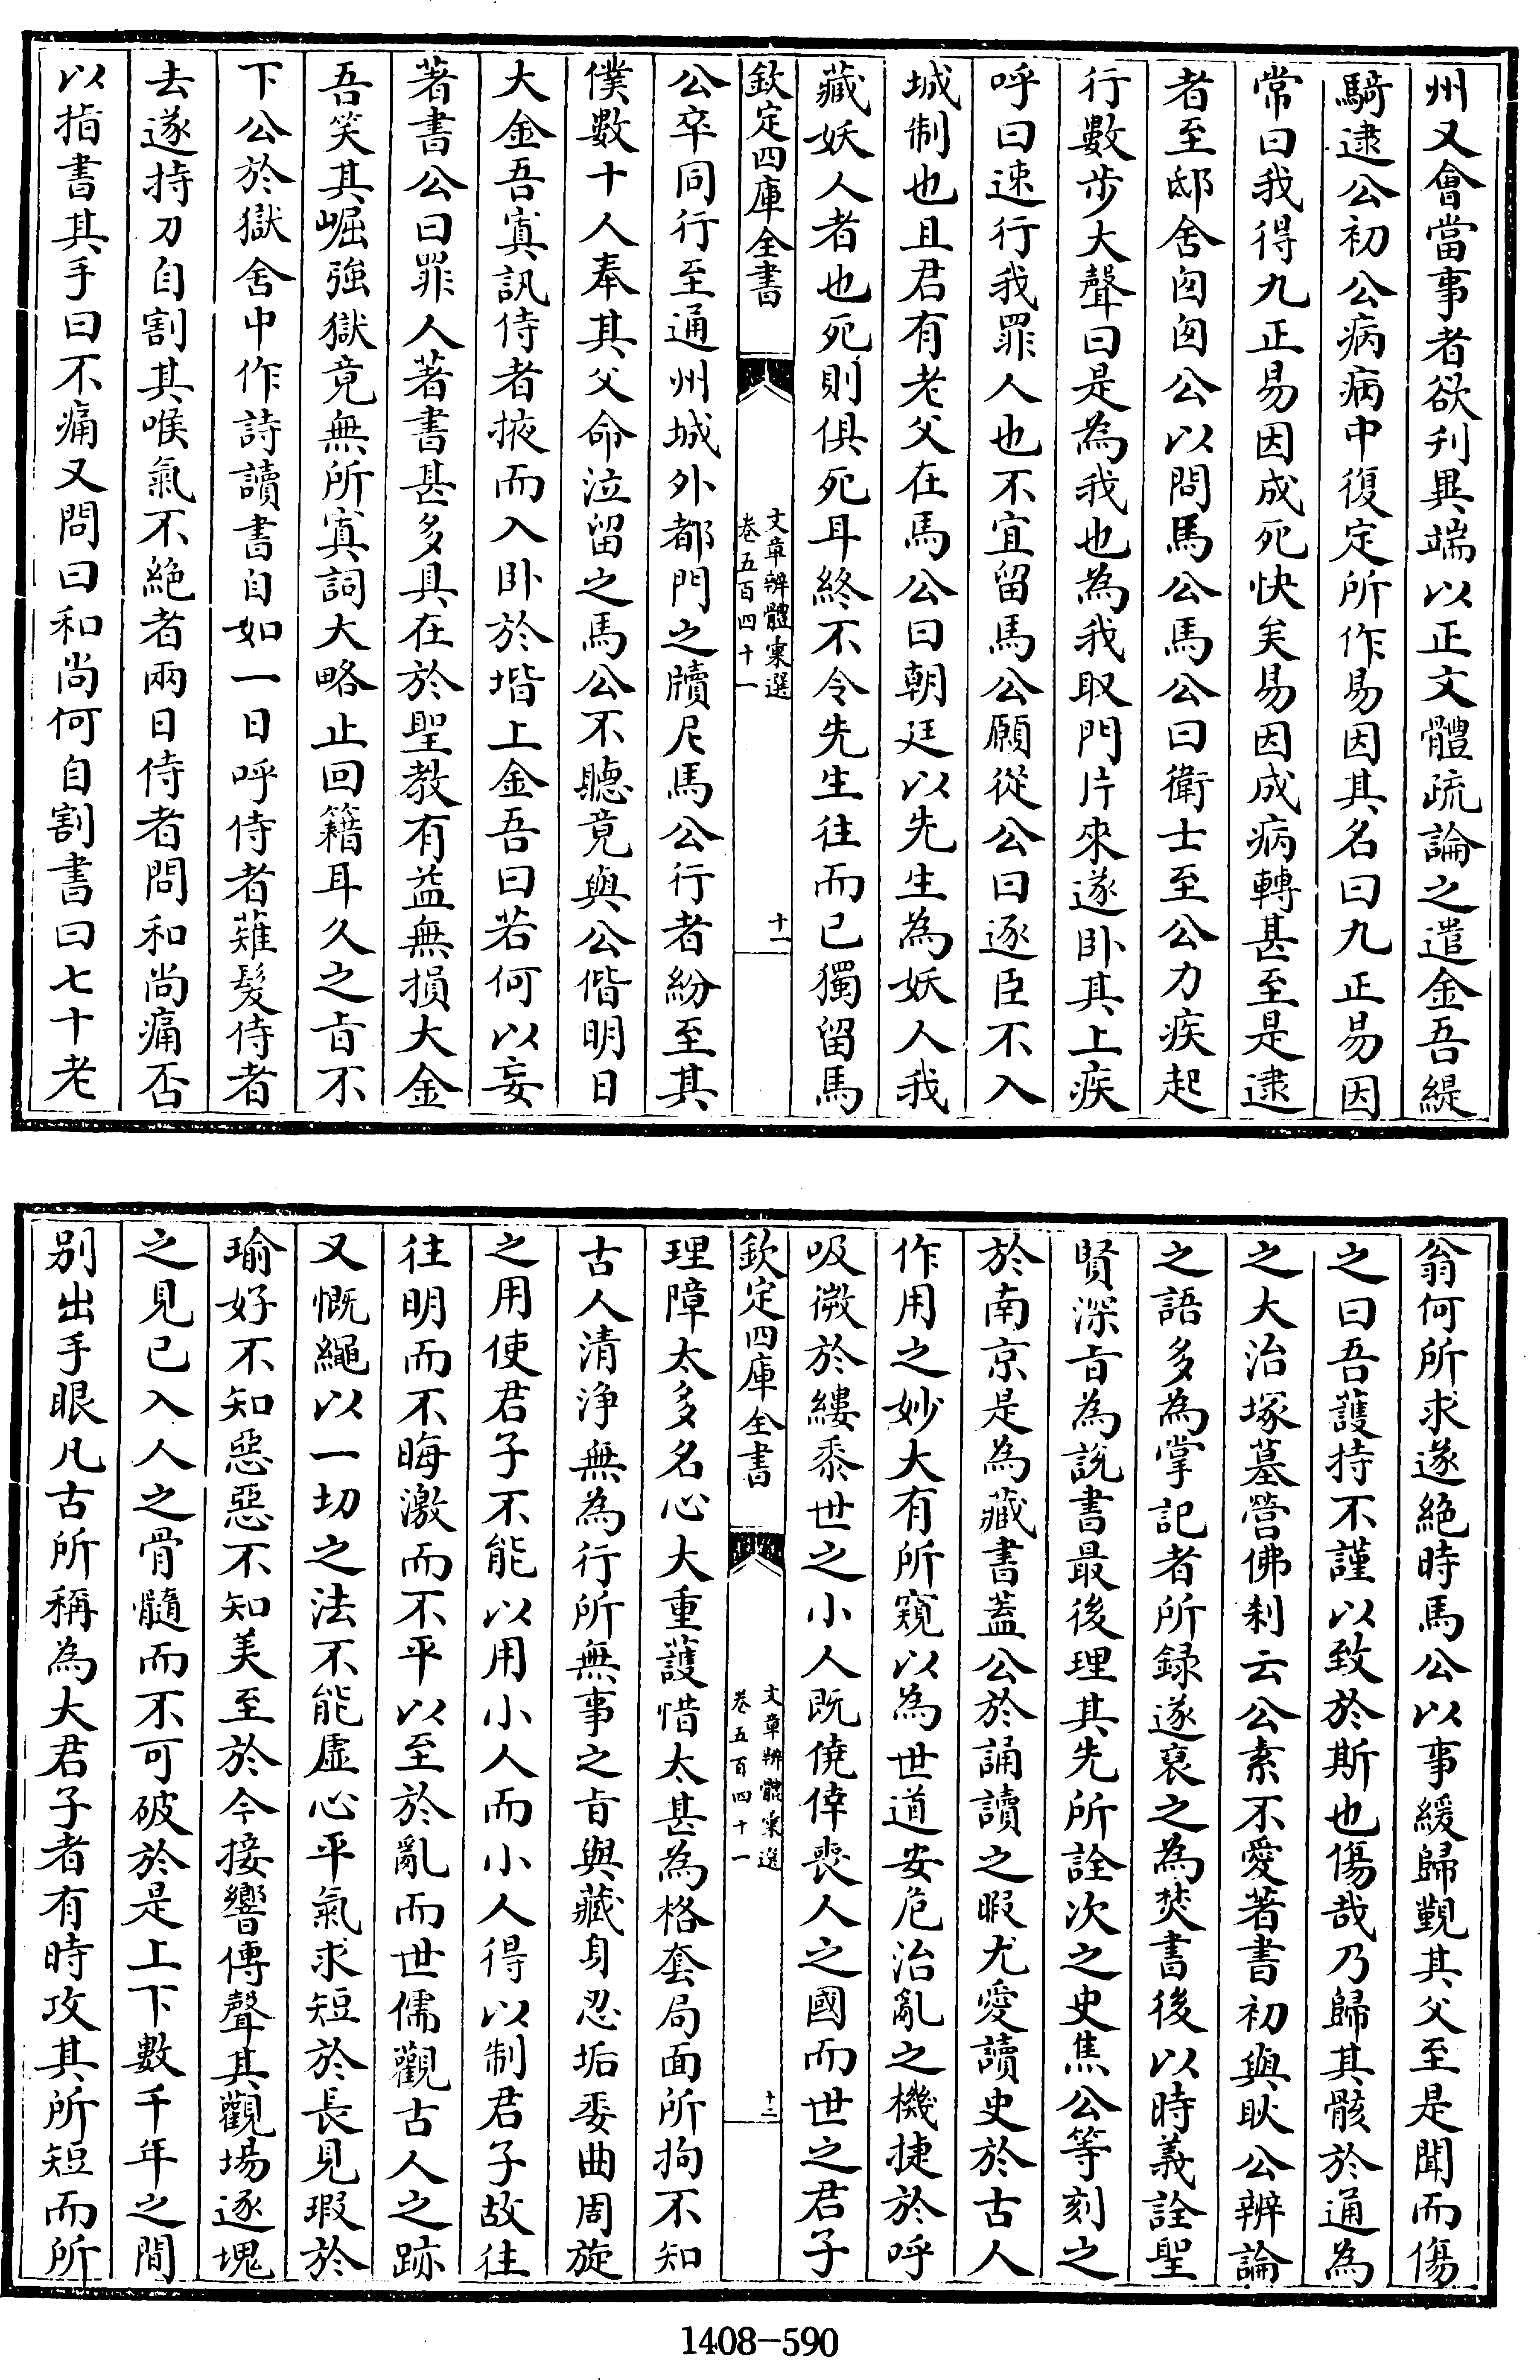 州又會當事者欲刋異端以正文體疏論之遣金吾緹
騎逮公初公病病中復定所作易因其名曰九正易因
常曰我得九正易因成死快矣易因成病轉甚至是逮
者至邸舍匆匆公以問馬公馬公曰衛士至公力疾起
行數步大聲曰是為我也為我取門片來遂卧其上疾
呼曰速行我罪人也不宜留馬公願從公曰逐臣不入
城制也且君有老父在馬公曰朝廷以先生為妖人我
藏妖人者也死則俱死耳終不令先生往而已獨留馬
欽定四庫全書
文章辨體彚選
卷五百四十一
十一
公卒同行至通州城外都門之牘尼馬公行者紛至其
僕數十人奉其父命泣留之馬公不聽竟與公偕明日
大金吾寘訊侍者掖而入卧於堦上金吾曰若何以妄
著書公曰罪人著書甚多具在於聖教有益無損大金
吾笑其崛強獄竟無所寘詞大略止回籍耳久之㫖不
下公於獄舍中作詩讀書自如一日呼侍者薙髮侍者
去遂持刀自割其喉氣不絶者兩日侍者問和尚痛否
以指書其手曰不痛又問曰和尚何自割書曰七十老
翁何所求遂絶時馬公以事緩歸覲其父至是聞而傷
之曰吾護持不謹以致於斯也傷哉乃歸其骸於通為
之大治塚墓營佛刹云公素不愛著書初與耿公辨論
之語多為掌記者所録遂裒之為焚書後以時義詮聖
賢深㫖為説書最後理其先所詮次之史焦公等刻之
於南京是為藏書蓋公於誦讀之暇尤愛讀史於古人
作用之妙大有所窺以為世道安危治亂之機捷於呼
吸微於縷黍世之小人既僥倖喪人之國而世之君子
欽定四庫全書
文章辨體彚選
卷五百四十一
十二
理障太多名心大重護惜太甚為格套局面所拘不知
古人清浄無為行所無事之㫖與藏身忍垢委曲周旋
之用使君子不能以用小人而小人得以制君子故往
往明而不晦激而不平以至於亂而世儒觀古人之跡
又慨繩以一切之法不能虛心平氣求短於長見瑕於
瑜好不知惡惡不知美至於今接響傳聲其觀場逐塊
之見已入人之骨髓而不可破於是上下數千年之間
别出手眼凡古所稱為大君子者有時攻其所短而所
1408-590